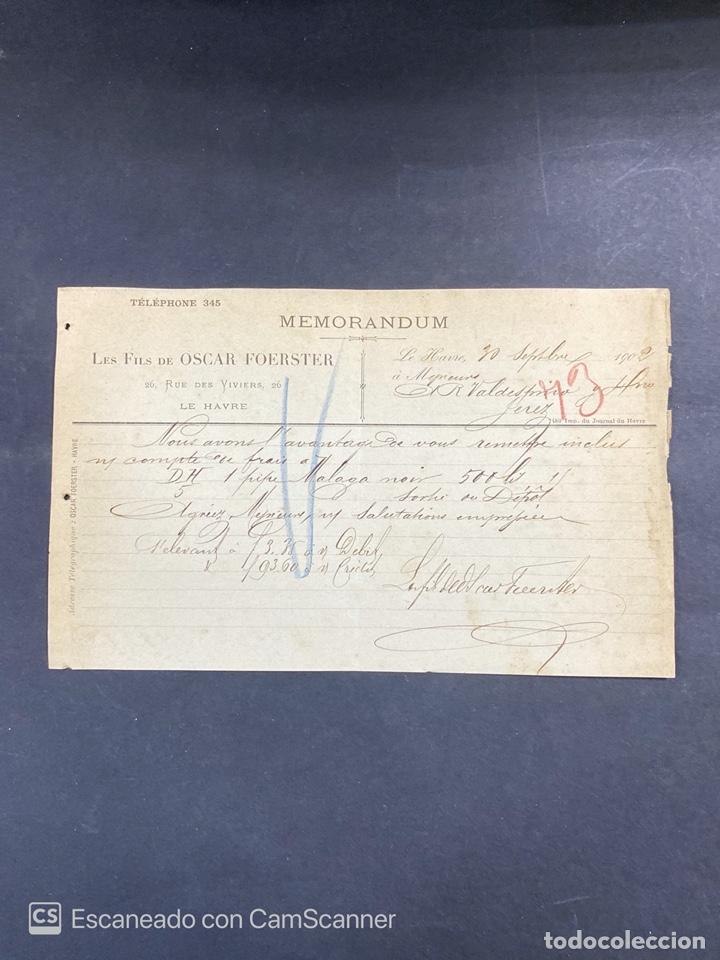 TÉLÉPHONE 345
MEMORANDUM
LES FILS DE OSCAR FOERSTER
26, RUE DES VIVIERS, 26
LE HAVRE
Le Havre, 30 Septbre 1902
à Messieurs
A R Valdespino y Hno
Jerez
73
Imp. du Journal du Havre
Adresse Télégraphique : OSCAR FOERSTER - HAVRE
Nous avons l'avantage de vous remettre inclus
n/ compte de frais s/
DH 1 pipe Malaga noir 500 lit
5 sortie du Dépôt
Agréez, Messieurs, n/ salutations empressées
S'élevant à 3.35 à n/ Débit,
93.60 à n/ Crédit,
Les fils de Oscar Foerster
CS Escaneado con CamScanner
todocoleccion